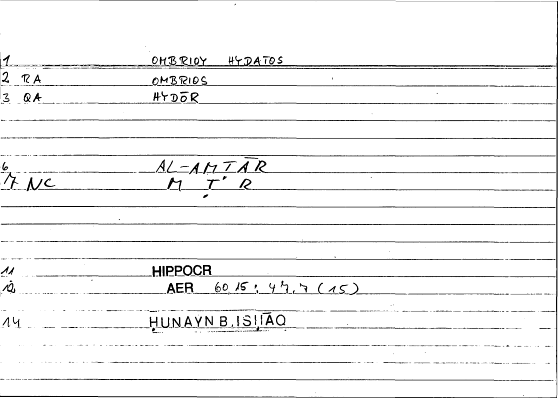 1 OMBRIOY HYDATOS
2 RA OMBRIOS
3 QA HYDŌR
6 AL-AMṬĀR
7 NC M Ṭ R
11 HIPPOCR
12 AER 60 15: 47.7 (15)
14 ḤUNAYN B. ISḤĀQ